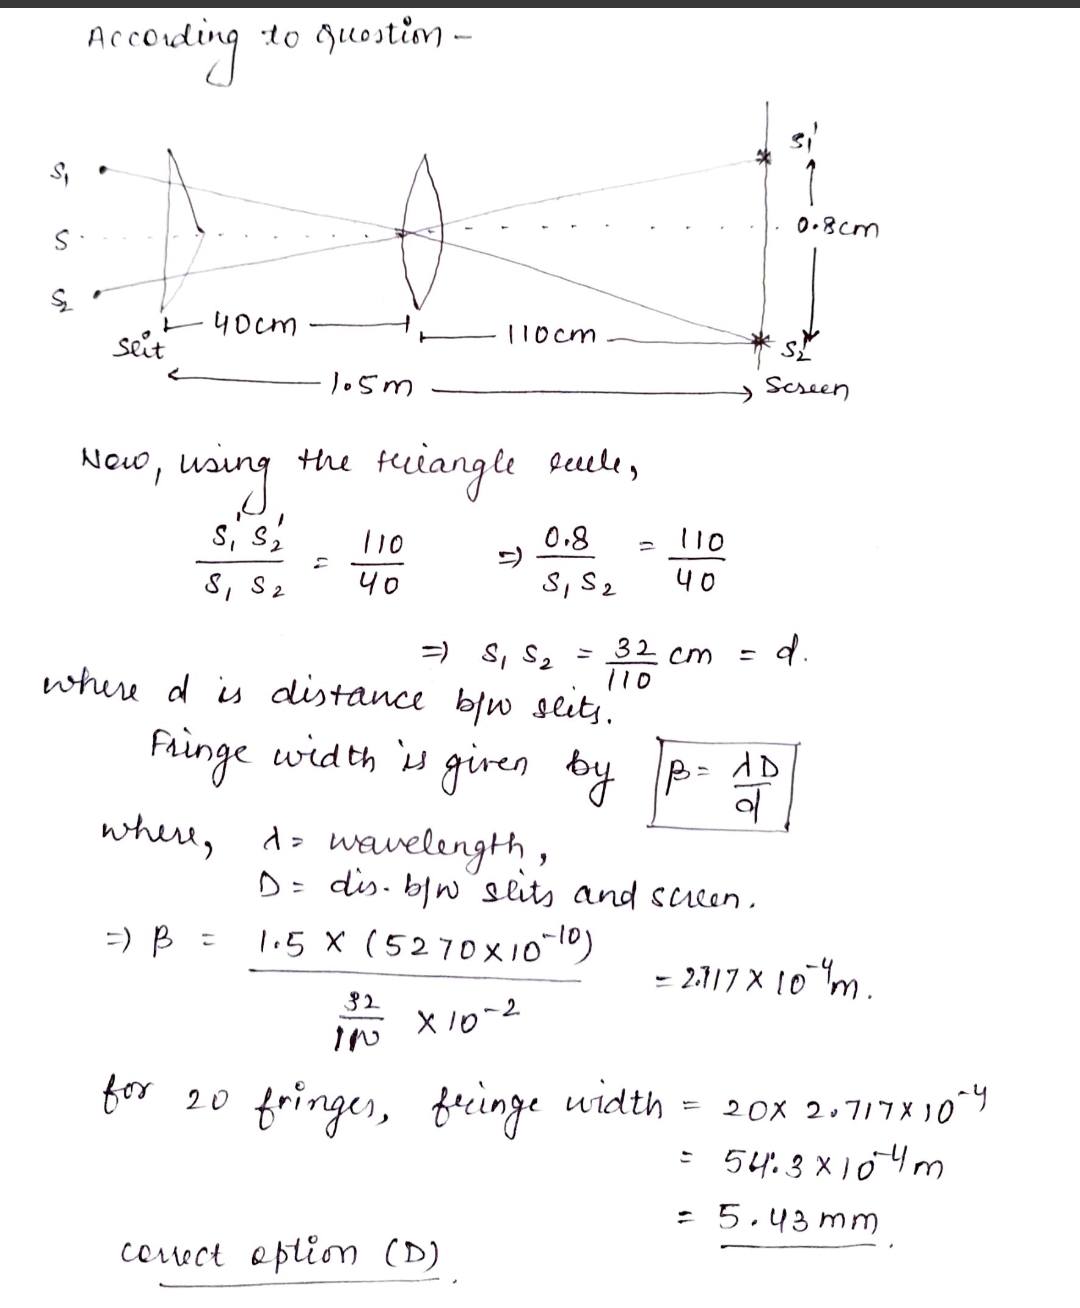 According to question -
S1' 
S1
0.8cm
S
S2
40cm
110cm
S2'
Slit
1.5m
Screen
Now, using the triangle rule,
S1' S2' / S1 S2 = 110/40 ⇒ 0.8 / S1 S2 = 110/40
⇒ S1 S2 = 32/110 cm = d.
where d is distance b/w slits.
Fringe width is given by β = λD/d
where, λ = wavelength,
D = dis. b/w slits and screen.
⇒ β = 1.5 × (5270×10^-10) / 32/110 × 10^-2 = 2.717 × 10^-4 m.
for 20 fringes, fringe width = 20× 2.717×10^-4
= 54.3 × 10^-4 m
= 5.43 mm.
correct option (D).